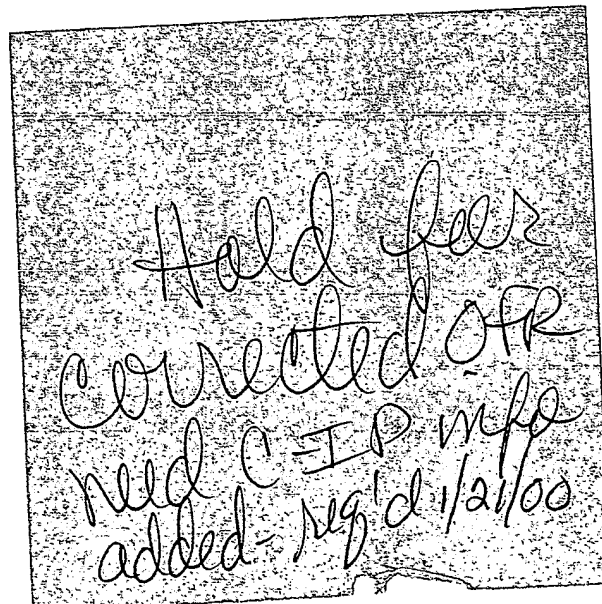 Hold for
corrected OFR
need C-IP info
added- req'd 1/21/00